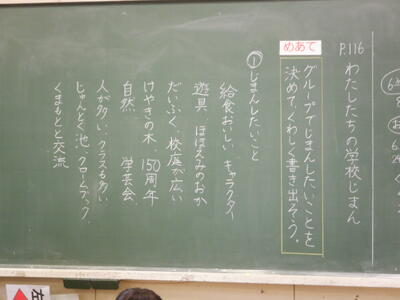 P.116
わたしたちの学校じまん
めあて
グループでじまんしたいことを
決めて、くわしく書き出そう。
①じまんしたいこと
給食おいしい キャラクター
遊具、ほほえみのおか
だいふく、校庭が広い
けやきの木、150周年
自然、学芸会、
人が多い、クラスも多い
じゅんとく池、クロームブック
くまもとと交流